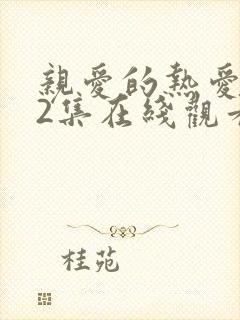 親愛的熱愛
2集在綫觀
桂苑